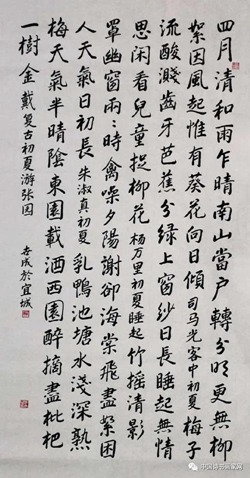 四月清和雨乍晴南山當户轉分明更無柳
絮因風起惟有葵花向日傾司马光客中初夏梅子
流酸濺齒牙芭蕉分綠上窗紗日長睡起無情
思閑看兒童捉柳花杨万里初夏睡起竹摇清影
罩幽窗兩兩時禽噪夕陽謝卻海棠飛盡絮困
人天氣日初長朱淑真初夏乳鴨池塘水淺深熟
梅天氣半晴陰東園載酒西園醉摘盡枇杷
一樹金戴复古初夏游张园
成於宜城
中国诗书画家网